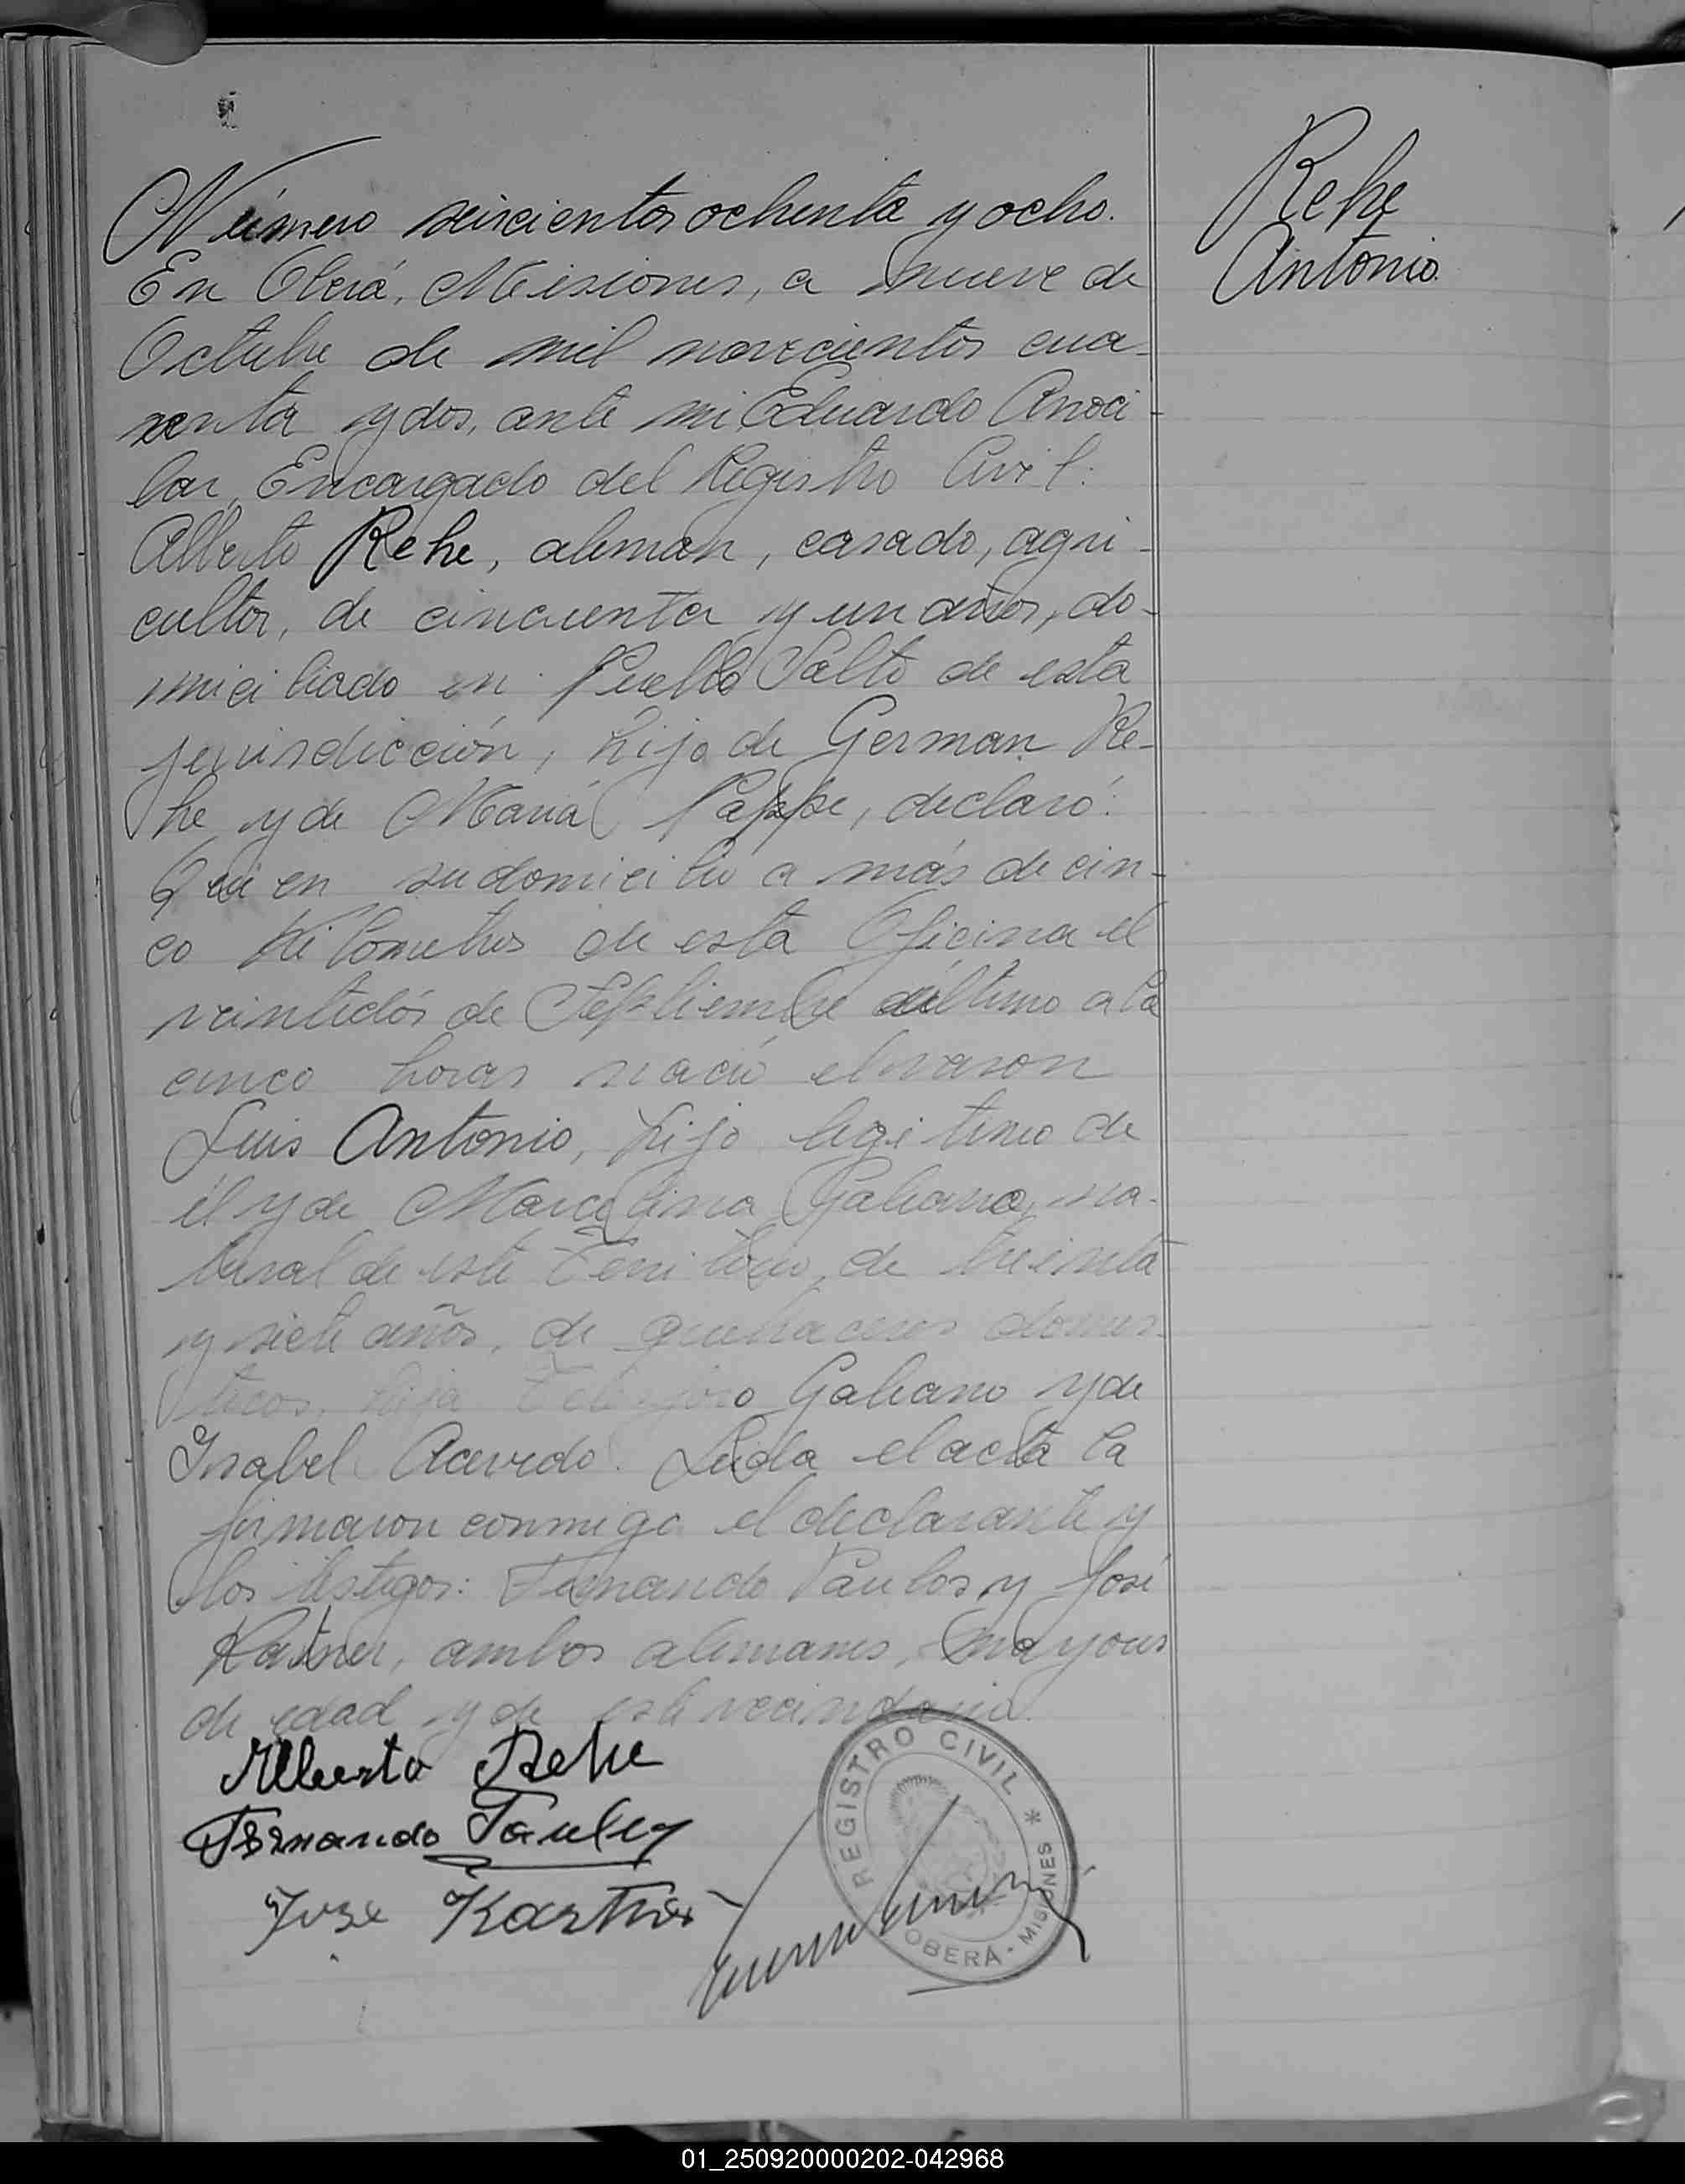 Rehe
Antonio.
Número seiscientos ochenta y ocho.
En Oberá, Misiones, a nueve de
Octubre de mil novecientos cua-
renta y dos, ante mi, Eduardo Anoci-
bar, Encargado del Registro Civil:
Alberto Rehe, aleman, casado, agri-
cultor, de cincuenta y un años, do-
miciliado en Pueblo Salto de esta
jurisdicción, hijo de German Re-
he y de Maria Pappe, declaró:
Que en su domicilio a más de cin-
co kilometros de esta Oficina el
veintidós de Septiembre último a la
cinco horas nació el varon
Luis Antonio, hijo legitimo de
él y de Marcelina Galeano, na-
tural de este Territorio, de treinta
y siete años, de quehaceres domes-
ticos, hija Telesforo Galeano y de
Isabel Acevedo. Leida el acta la
firmaron conmigo el declarante y
los testigos: Fernando Paulos y José
Kastner, ambos alemanes, mayores
de edad y de este vecindario.
Alberto Rehe
Fernando
Jose Kastner
REGISTRO CIVIL *
OBERÁ - MISIONES
01_250920000202-042968